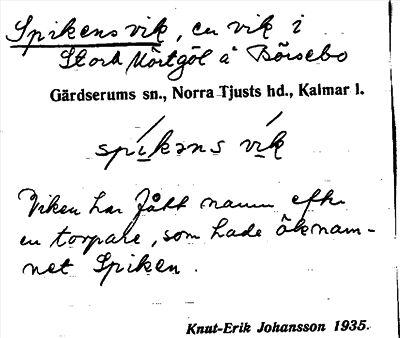 Spikens vik, en vik i
Stora Mörtgöl å Börsebo
Gärdserums sn., Norra Tjusts hd., Kalmar l.
spíkəns vík
Viken har fått namn efter
en torpare, som hade öknam-
net Spiken.
Knut-Erik Johansson 1935.